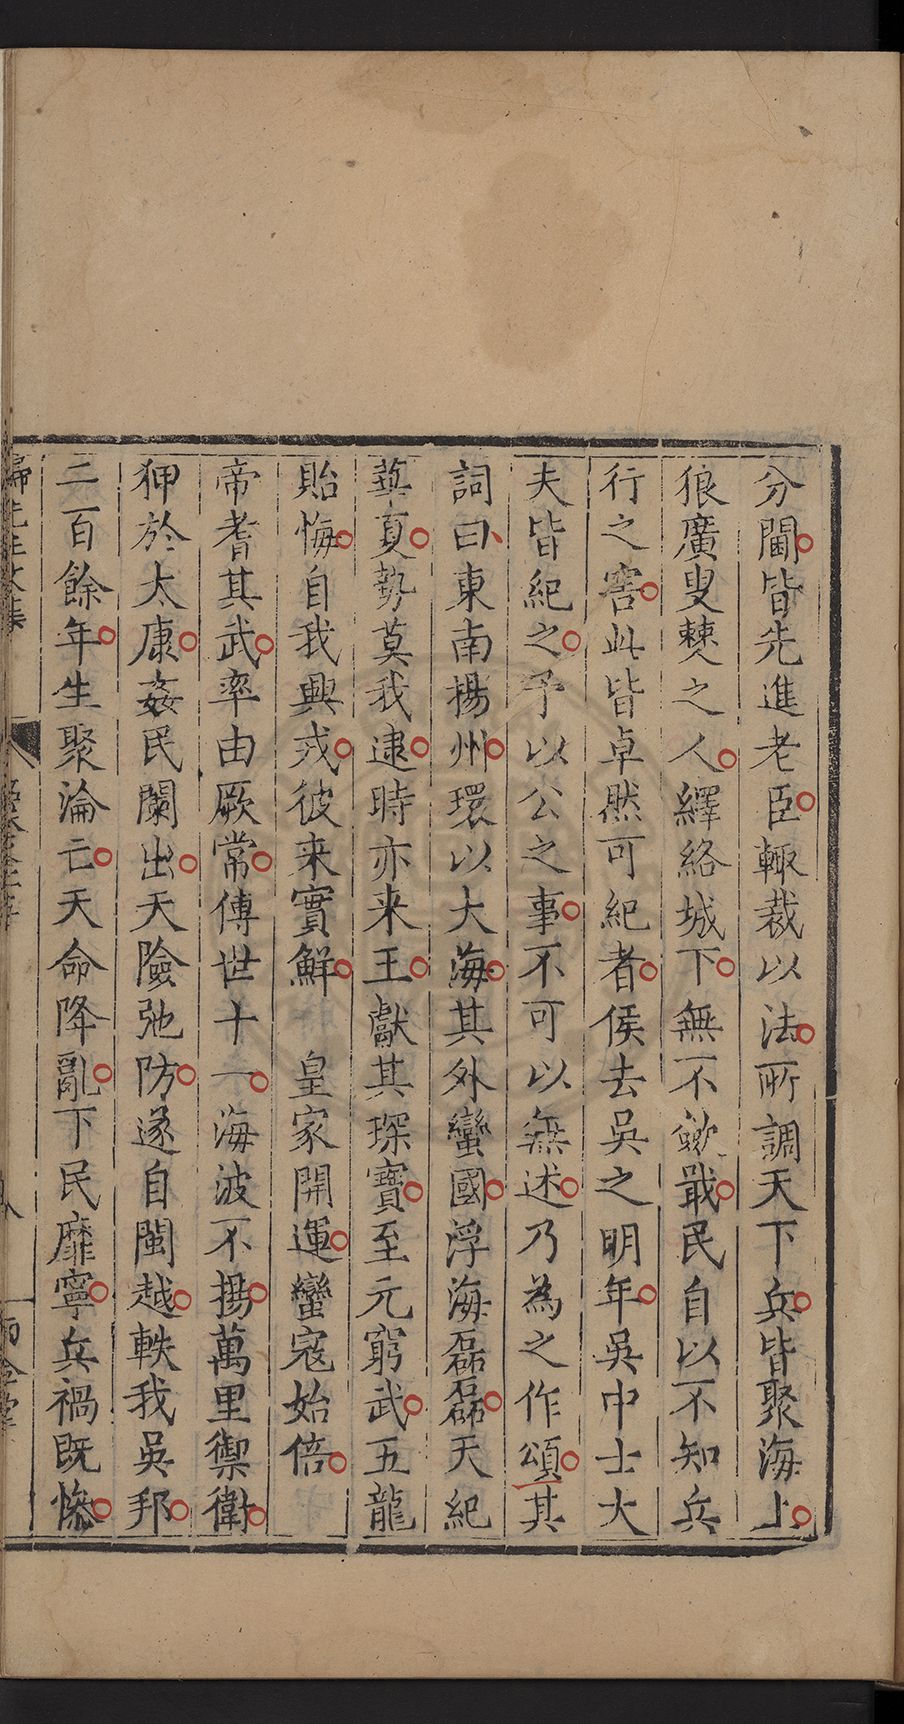 分閫皆先進老臣輙裁以法所調天下兵皆聚海上
狼廣叟㯠之人繹絡城下無不歛戢民自以不知兵
行之害此皆卓然可紀者侯去吳之明年吳中士大
夫皆紀之予以公之事不可以無述乃為之作頌其
詞曰東南揚州環以大海其外蠻國浮海磊磊天紀
華夏勢莫我逮時亦来王獻其琛寶至元窮武五龍
貽悔自我興戎彼来實鮮　皇家開運蠻寇始倍
帝耆其武率由厥常傳世十一海波不揚萬里禦衛
狎於太康姦民闌出天險弛防遂自閩越軼我吳邦
二百餘年生聚淪亡天命降亂下民靡寧兵禍既慘